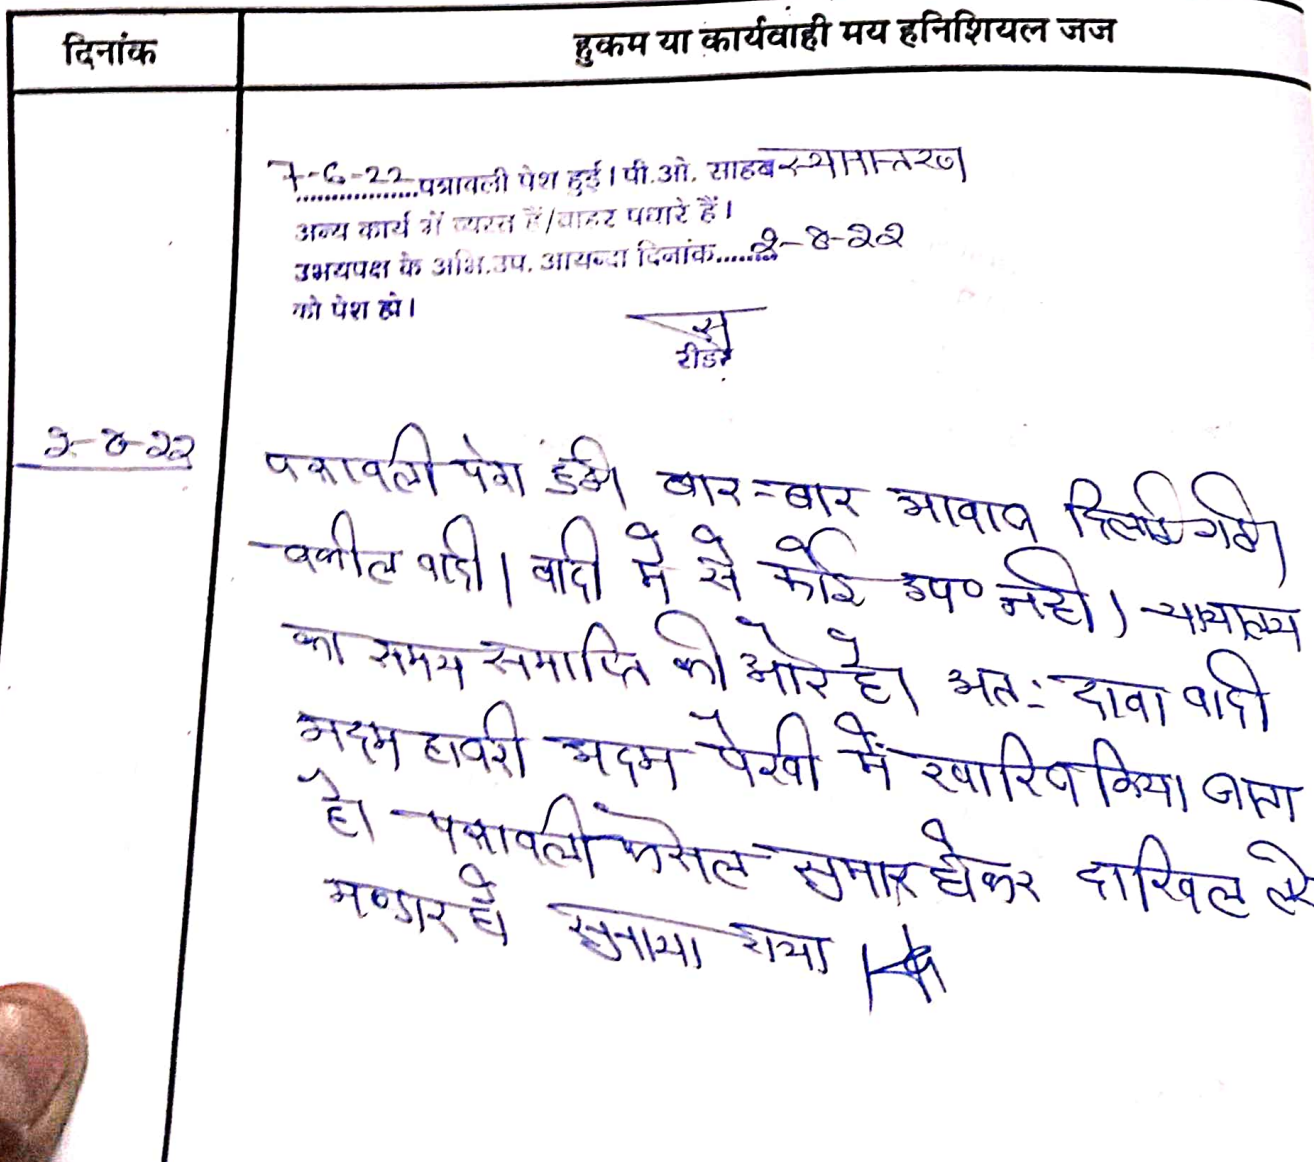 दिनांक
हुकम या कार्यवाही मय हनिशियल जज
7-6-22 पत्रावली पेश हुई। पी.ओ. साहब स्थानान्तरण
अन्य कार्य में व्यस्त हैं/बाहर पधारे हैं।
उभयपक्ष के अभि.उप. आयन्दा दिनांक......२-८-२२
को पेश हो।
रीडर
२-८-२२
पत्रावली पेश हुई। बार-बार आवाज दिलाई गई।
वकील वादी। वादी में से कोई उप० नहीं। न्यायालय
का समय समाप्ति की ओर है। अतः दावा वादी
अदम हाजरी अदम पैरवी में खारिज किया जाता
है। पत्रावली फैसल सुमार होकर दाखिल
भण्डार हो सुनाया गया।